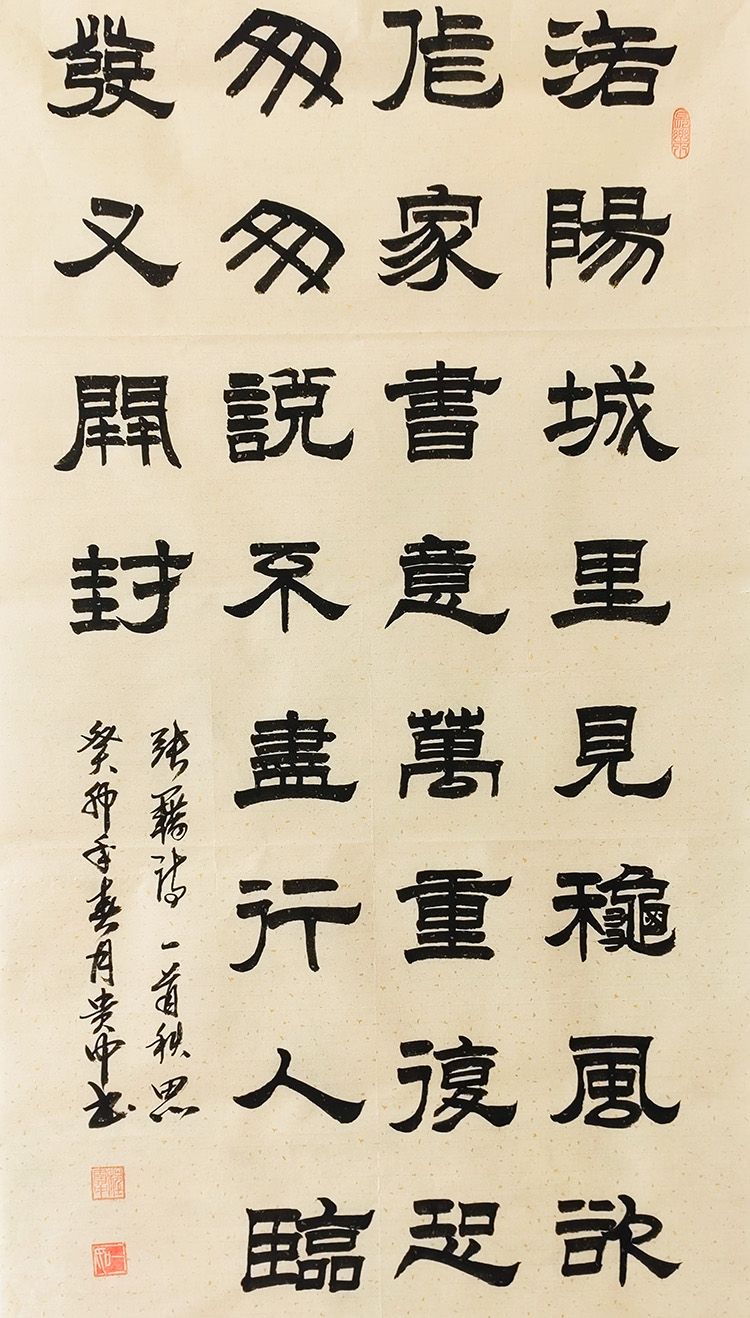 洛陽城里見龝風欲
作家書意萬重復恐
匆匆説不盡行人臨
發又開封
張籍詩一首秋思
癸卯年春月贵中书